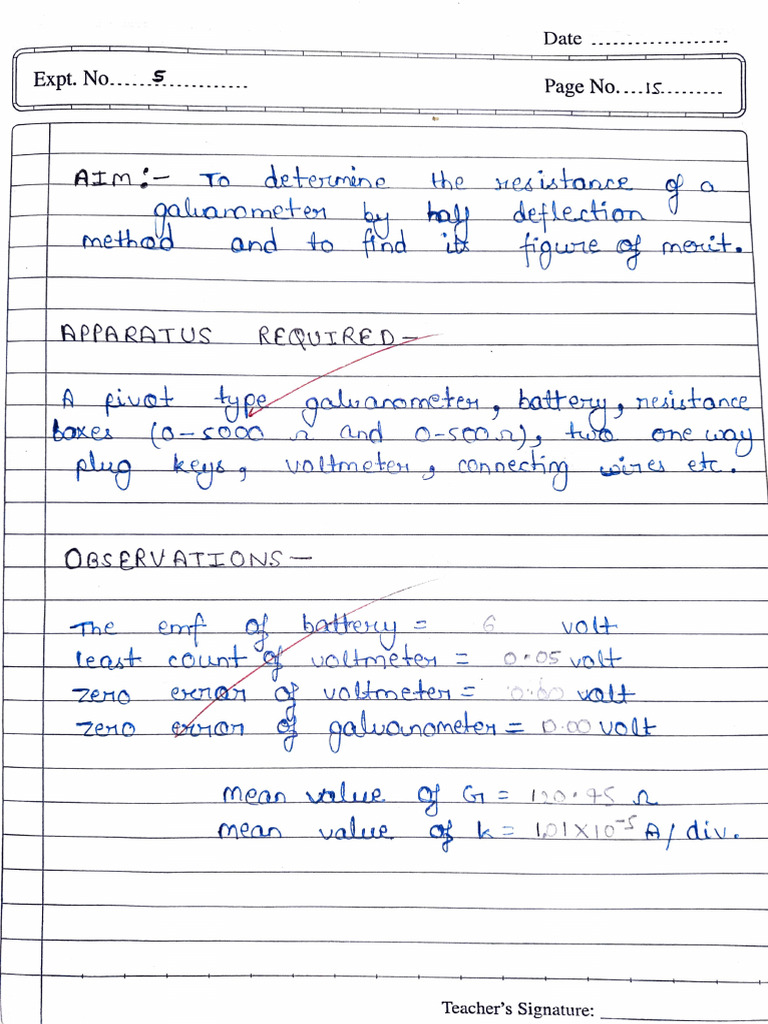 Date ....................
Expt. No. ...... 5 ..............
Page No. .... 15 ..........
AIM :- To determine the resistance of a
galvanometer by half deflection
method and to find its figure of merit.
APPARATUS REQUIRED -
A pivot type galvanometer, battery, resistance
boxes (0-5000 Ω and 0-500Ω), two one way
plug keys, voltmeter, connecting wires etc.
OBSERVATIONS -
The emf of battery = 6 volt
least count of voltmeter = 0.05 volt
zero error of voltmeter = 0.00 volt
zero error of galvanometer = 0.00 volt
mean value of G = 120.45 Ω
mean value of k = 1.01 X 10⁻⁵ A/div.
Teacher's Signature: ____________